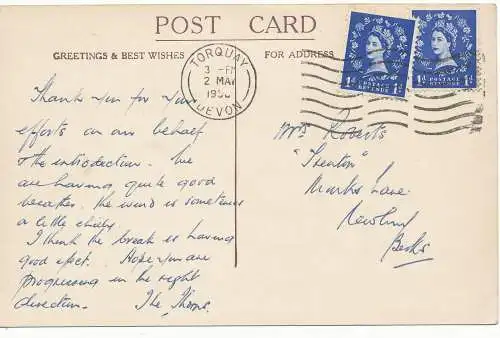 POST CARD
GREETINGS & BEST WISHES
FOR ADDRESS
TORQUAY
3 - PM
2 MAY
DEVON
1d POSTAGE REVENUE 1d
1d POSTAGE REVENUE 1d
Thank you for your
efforts on our behalf
& the introduction. We
are having quite good
weather. The wind is sometimes
a little chilly.
I think the break is having
good effect. Hope you are
progressing in the right
direction. The
Mrs Roberts
Lane
Newbury
Berks